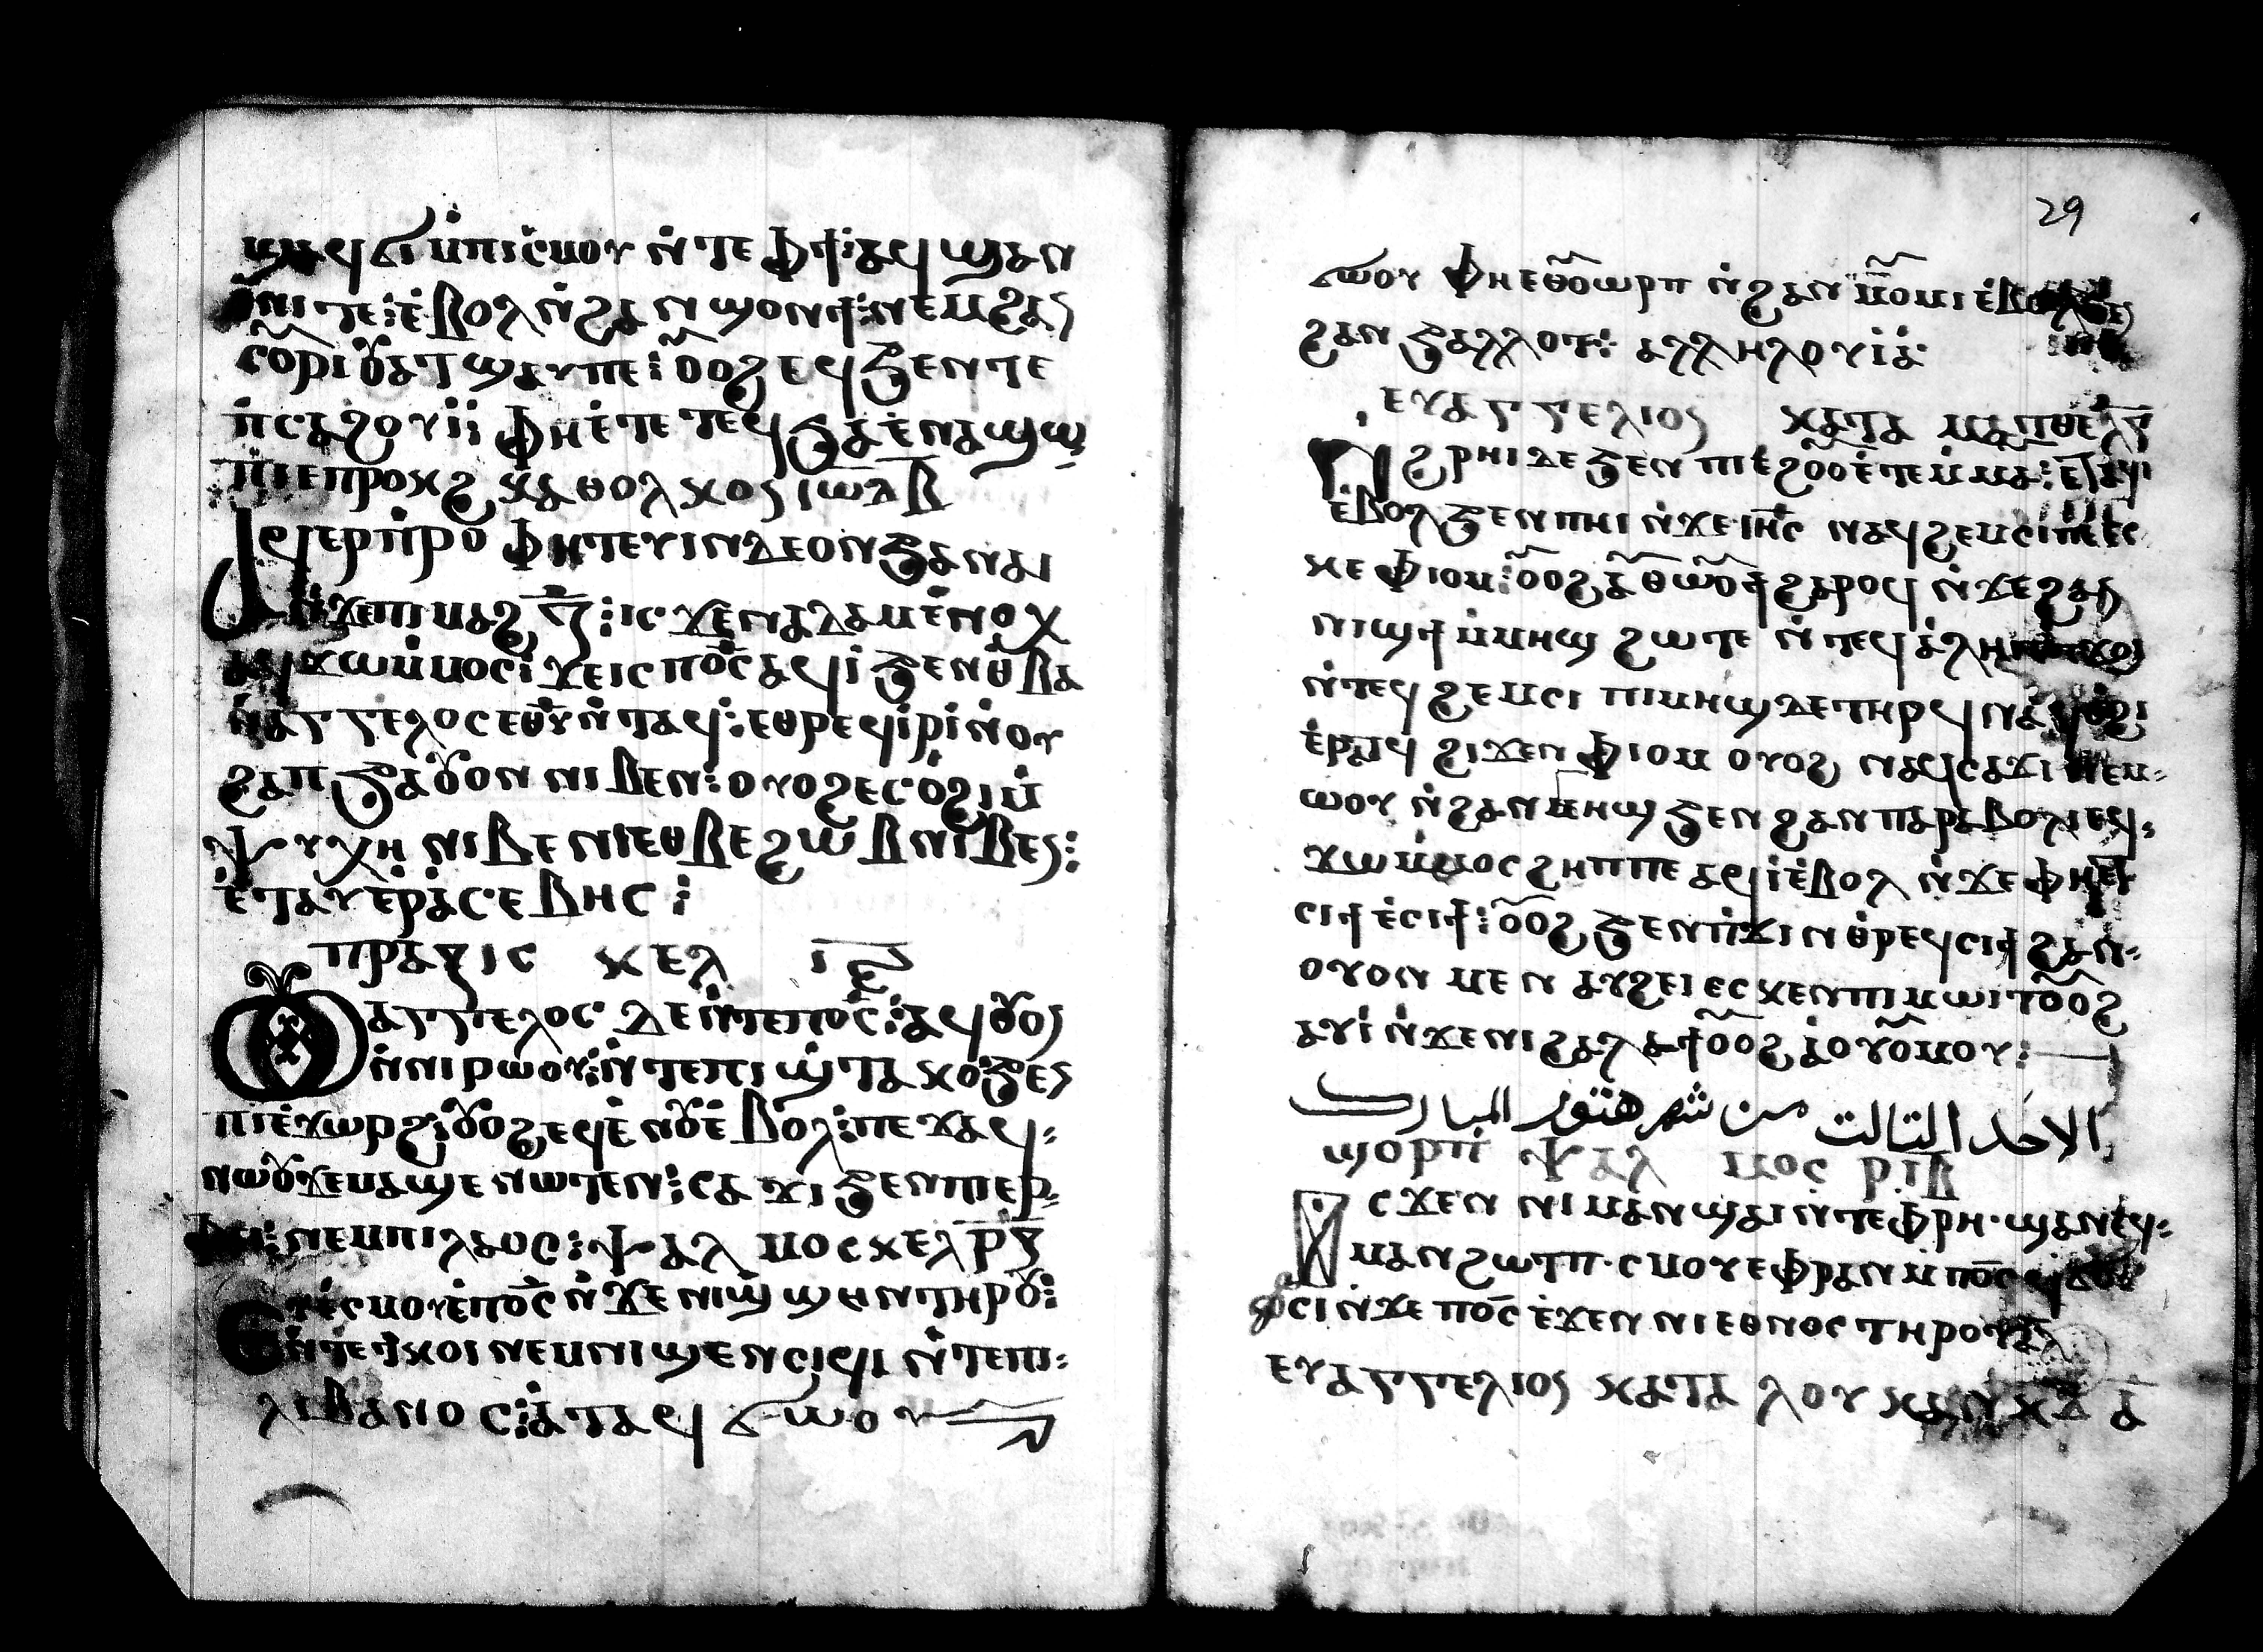 ϣⲁϥϭⲓ ⲙ̇ⲡⲓⲥ̇ⲙⲟⲩ ⲛ̇ⲧⲉ ⲫϯ: ⲁϥϣⲁⲛ
ⲓ̇ⲛⲓ ⲧⲉ: ⲉ̇ⲃⲟⲗ ⲛ̇ϩⲁⲛϣⲟⲛϯ: ⲛⲉⲙ ϩⲁⲛ
ⲥⲟ̅ⲣⲓ ⲟⲩⲁⲧϣⲁⲩ ⲡⲉ: ⲟ̅ⲟϩ ⲉϥϧⲉⲛⲧ ⲉ
ⲡ̇ⲥⲁϩⲟⲩⲓ̇: ⲫⲏⲉ̇ⲧⲉ ⲧⲉϥϧⲁⲉ̀ ⲛⲁϣⲱ
ⲡⲓ ⲉⲡⲣⲟⲕϩ ⲕⲁⲑⲟⲗⲕⲟⲛ ⲓⲱⲇ ⲃ̅
ⲁϥⲉⲣⲡ̇ⲣⲟ ⲫⲏⲧⲉⲩⲓⲛ ⲇⲉ ⲟⲛ ϧⲁ ⲛⲁⲓ
ⲛ̇ϫⲉ ⲡⲓⲙⲁϩ ⲍ̅: ⲓⲥϫⲉⲛ ⲁⲇⲁⲙ ⲉ̇ⲛⲟⲭ
ⲁϥϫⲱ ⲙ̇ⲙⲟⲥ ϫⲉ ⲓⲥ ⲡⲟ̅ⲥ̅ ⲁϥⲓ̇ ϧⲉⲛ ⲑ̇ⲃⲁ
ⲛ̇ⲁⲅⲅⲉⲗⲟⲥ ⲉⲑⲩ ⲛ̇ⲧⲁϥ: ⲉⲑⲣⲉϥⲓ̇ⲣⲓ ⲛ̇ⲟⲩ
ϩⲁⲡ ϧⲁ ⲟⲩⲟⲛ ⲛⲓⲃⲉⲛ: ⲟⲩⲟϩ ⲉⲥⲟ̇ϩⲓ ⲙ̇
ⲯⲩⲭⲏ ⲛⲓⲃⲉⲛ ⲉⲑⲃⲉ ϩⲱⲃ ⲛⲓⲃⲉⲛ:
ⲉ̇ⲧⲁⲩⲉ̇ⲣⲁ̇ⲥⲉⲃⲏⲥ:
ⲡⲣⲁⲝⲓⲥ ⲕⲉⲗ ⲓ̅ⲉ̅
ⲟⲩⲁⲅⲅⲉⲗⲟⲥ ⲇⲉ ⲛ̇ⲧⲉ ⲡⲟ̅ⲥ̅: ⲁϥⲟⲩⲟⲛ
ⲛ̇ⲛⲓⲣⲱⲟⲩ: ⲛ̇ⲧⲉ ⲡⲓϣ̇ⲧⲁⲕⲟ: ϧⲉⲛ
ⲡⲓⲉ̇ϫⲱⲣϩ: ⲟⲩⲟϩ ⲉϥⲉ̇ⲛⲟⲩ ⲉ̇ⲃⲟⲗ: ⲡⲉϫⲁϥ:
ⲛⲱⲟⲩ ϫⲉ ⲙⲁϣⲉ ⲛⲱⲧⲉⲛ: ⲥⲁϫⲓ ϧⲉⲛ ⲡⲓⲉⲣ
ⲫⲉⲓ: ⲛⲉⲙ ⲡⲓⲗⲁⲟⲥ: ⲯⲁⲗⲙⲟⲥ ⲕⲉⲗ ⲣ̅ⲅ̅
ⲉⲩⲉ̇ⲥⲙⲟⲩ ⲉ̇ⲡⲟ̅ⲥ̅ ⲛ̇ϫⲉ ⲛⲓϣ̇ϣⲏⲛ ⲧⲏⲣⲟⲩ:
ⲛ̇ⲧⲉ ⲧ̇ⲕⲟⲓ ⲛⲉⲙ ⲛⲓϣⲉⲛⲥⲓϥⲓ ⲛ̇ⲧⲉ ⲡⲓ:
ⲗⲓⲃⲁⲛⲟⲥ: ⲁ̇ⲧⲁϥϭⲱⲟⲩ
29
ϭⲱⲟⲩ ⲫⲏⲉⲑⲟ̅ⲱⲣⲡ ⲛ̇ϩⲁⲛⲙⲟ̅ⲙⲓ ⲉ̇ⲃⲟⲗ
ϩⲁⲛϧⲁⲗⲗⲟⲧ: ⲁⲗⲗⲏⲗⲟⲩⲓⲁ̇:
ⲉⲩⲁⲅⲅⲉⲗⲓⲟⲛ ⲕⲁⲧⲁ ⲙⲁⲧⲑⲉ
ⲛϩⲣⲏⲓ ⲇⲉ ϧⲉⲛ ⲡⲓⲉ̇ϩⲟ̅ⲟ ⲉ̇ⲧⲉⲙ̇ⲙⲁ: ⲉⲧⲁϥⲓ
ⲉ̇ⲃⲟⲗ ϧⲉⲛ ⲡⲏⲓ ⲛ̇ϫⲉ ⲓⲏ̅ⲥ̅ ⲛⲁϥϩⲉⲙⲥⲓ ⲡⲉ ⲉⲥ
ⲕⲉ ⲫⲓⲟⲙ: ⲟ̅ⲟϩ ⲁ̅ⲑⲱⲟ̅ϯ ϩⲁⲣⲟϥ ⲛ̇ϫⲉ ϩⲁⲛ
ⲛⲓϣϯ ⲙ̇ⲙⲏϣ ϩⲱⲧⲉ ⲛ̇ⲧⲉϥⲁ̇ⲗⲏⲓ
ⲛ̇ⲧⲉϥϩⲉⲙⲥⲓ ⲡⲓⲙⲏϣ ⲇⲉ ⲧⲏⲣϥ ⲛⲁϥⲟ̇ϩⲓ
ⲉ̇ⲣⲁⲧϥ ϩⲓϫⲉⲛ ⲫⲓⲟⲙ ⲟⲩⲟϩ ⲛⲁϥⲥⲁϫⲓ ⲛⲉⲙ:
ⲱⲟⲩ ⲛ̇ϩⲁⲛⲙⲏϣ ϧⲉⲛ ϩⲁⲛⲡⲁⲣⲁⲃⲟⲗⲓ ⲉϥ:
ϫⲱ ⲙ̇ⲙⲟⲥ ϩⲏⲡⲡⲉ ⲁϥⲓ̇ ⲉ̇ⲃⲟⲗ ⲛ̇ϫⲉ ⲫⲏⲉⲧ
ⲥⲓϯ ⲉ̇ⲥⲓϯ: ⲟ̅ⲟϩ ϧⲉⲛ ⲡ̇ϫⲓⲛⲑ̇ⲣⲉϥⲥⲓϯ ϩⲁⲛ:
ⲟⲩⲟⲛ ⲙⲉⲛ ⲁⲩϩⲉⲓ ⲉⲥⲕⲉⲛ ⲡⲓⲙⲱⲓⲧ ⲟ̅ⲟϩ
ⲁⲩⲓ̇ ⲛ̇ϫⲉ ⲛⲓϩⲁⲗⲁϯ ⲟ̅ⲟϩ ⲁ̇ⲟⲩⲟ̅ⲙⲟⲩ:
الاحد التالت من شهر هتور المبارك
ϣⲟⲣⲡ ⲯⲁⲗⲙⲟⲥ ⲣ̅ⲓ̅ⲃ̅
ⲓⲥϫⲉⲛ ⲛⲓⲙⲁⲛϣⲁⲓ ⲛ̇ⲧⲉ ⲫⲣⲏ· ϣⲁ ⲛⲉϥ:
ⲙⲁⲛϩⲱⲧⲡ· ⲥⲙⲟⲩ ⲉⲫⲣⲁⲛ ⲙ̇ⲡⲟ̅ⲥ̅ ϥϭⲟ
ⲥⲓ ⲛ̇ϫⲉ ⲡⲟ̅ⲥ̅ ⲉ̇ϫⲉⲛ ⲛⲓⲉⲑⲛⲟⲥ ⲧⲏⲣⲟⲩ
ⲉⲩⲁⲅⲅⲉⲗⲓⲟⲛ ⲕⲁⲧⲁ ⲗⲟⲩⲕⲁⲛ ⲕⲉ ⲁ̅